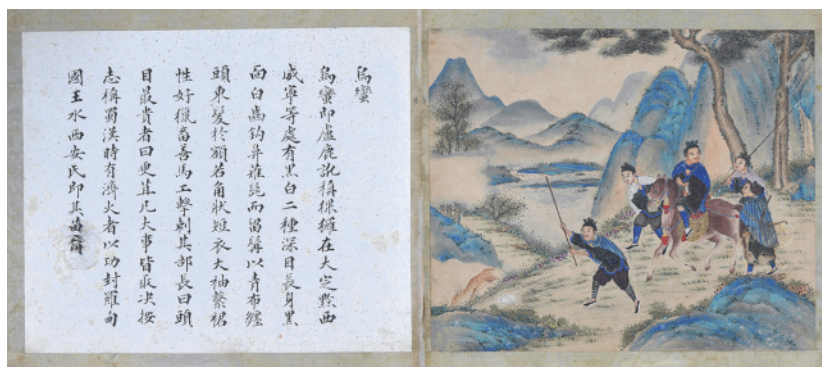 烏蠻
烏蠻即盧鹿訛稱倮㺚在大定黔西
威寧等處有黑白二種深目長身黑
面白齒鈎鼻雉跣而留髯以青布纏
頭束髮於額若角狀短衣大袖繫裙
性好獵畜善馬工擊刺其部長曰頭
目最貴者曰更苴凡大事皆取决按
志稱蜀漢時有濟火者以功封羅甸
國王水西安氏即其苗裔